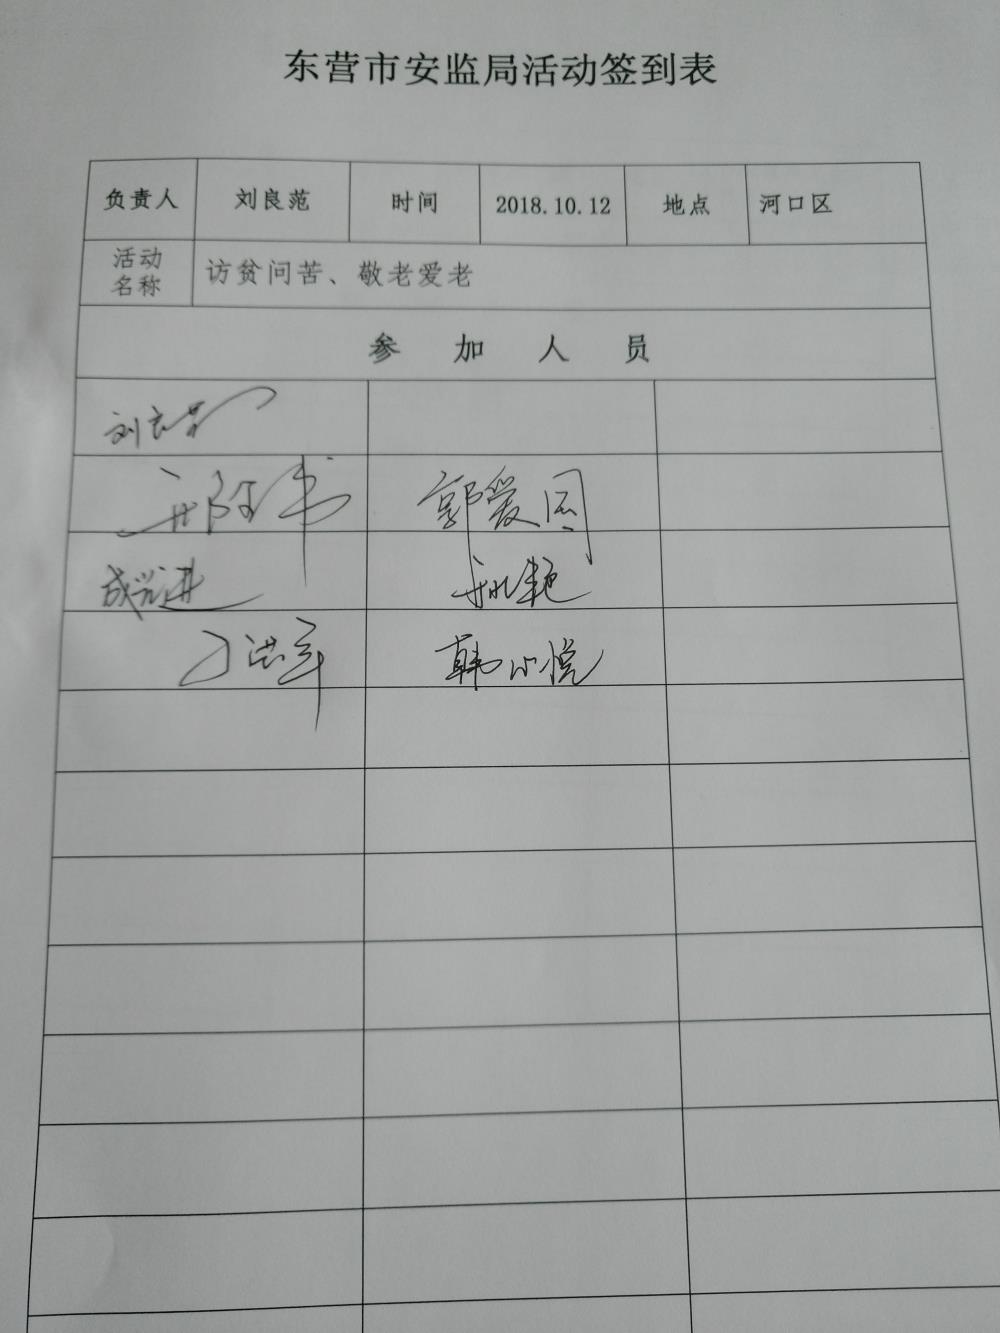 东营市安监局活动签到表
负责人 刘良范 时间 2018.10.12 地点 河口区
活动名称 访贫问苦、敬老爱老
参加人员
刘良范
郭爱国
成兴进
韩小悦